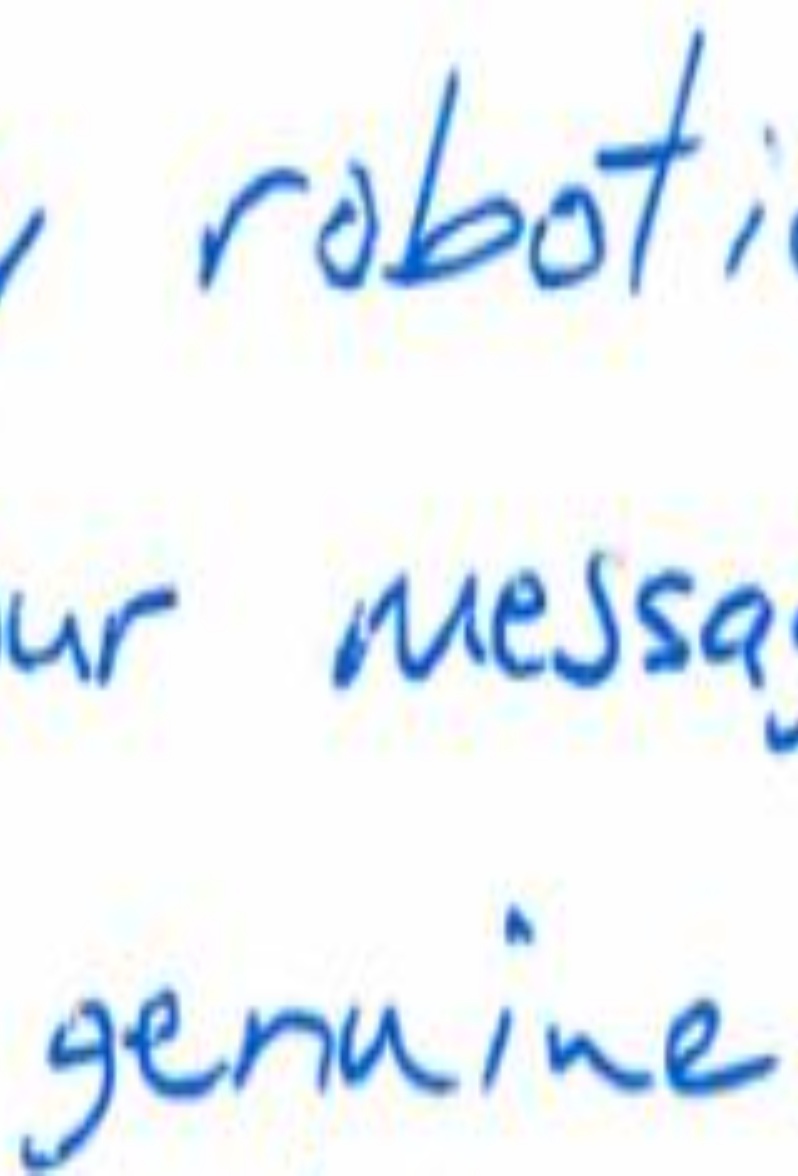 robotic
our messag
genuine